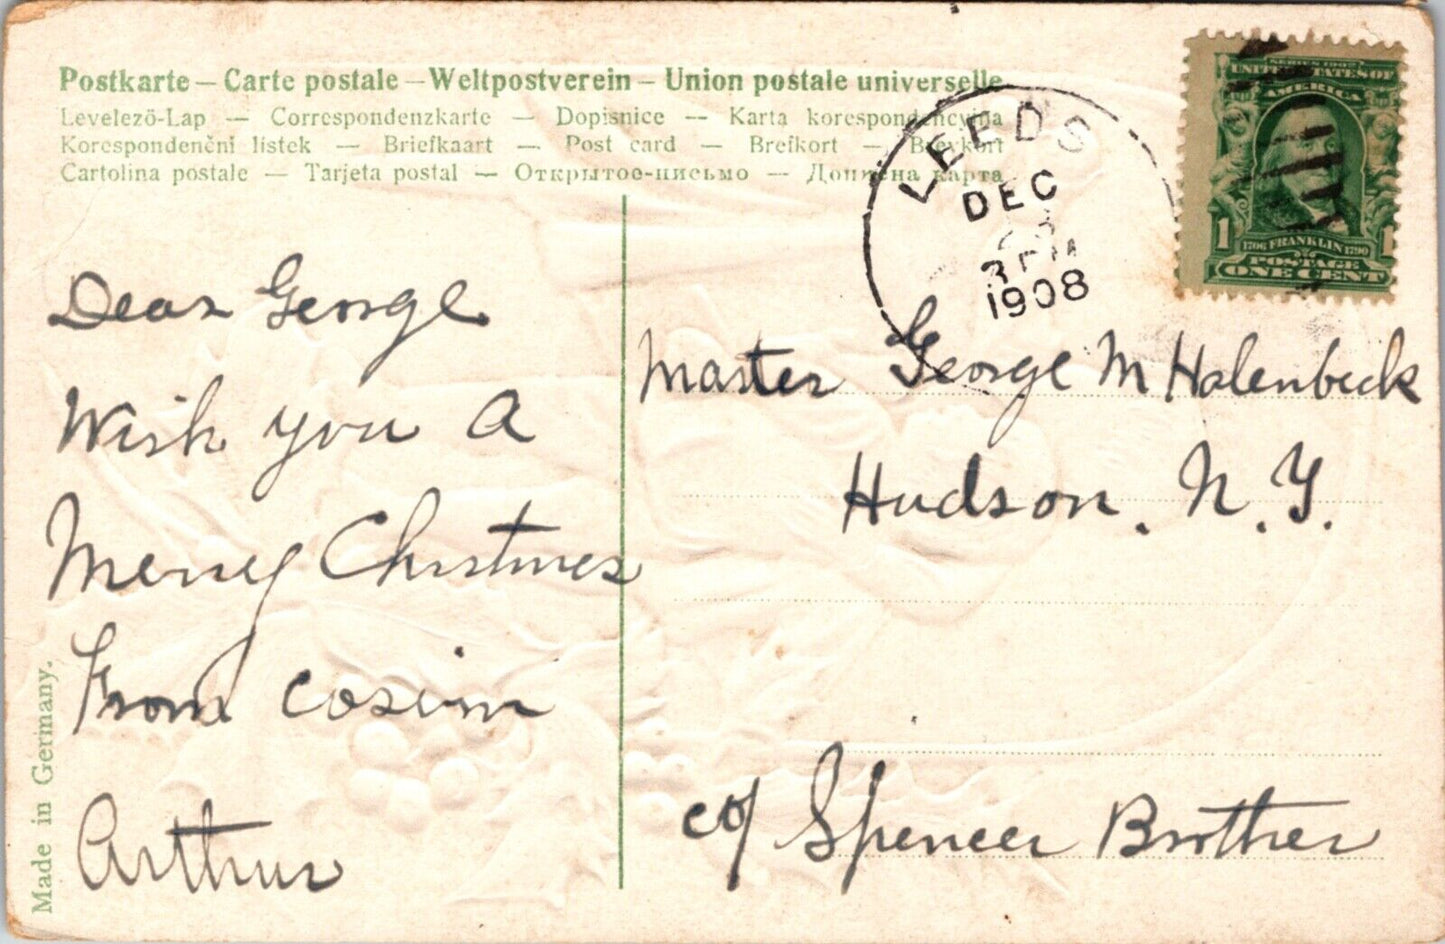 Postkarte — Carte postale — Weltpostverein — Union postale universelle
Levelezö-Lap — Correspondenzkarte — Dopisnice — Karta korespondencyjna
Korespondenční lístek — Briefkaart — Post card — Brefkort — Brevkort
Cartolina postale — Tarjeta postal — Открытое-письмо — Дописна карта
LEEDS
DEC
1908
SERIES 1902
UNITED STATES OF
AMERICA
1 1
1706 FRANKLIN 1790
POSTAGE
ONE CENT
Dear George
Wish you A
Merry Christmas
From cosin
Arthur
Master George M Halenbeck
Hudson. N.Y.
c/o Spencer Brother
Made in Germany.